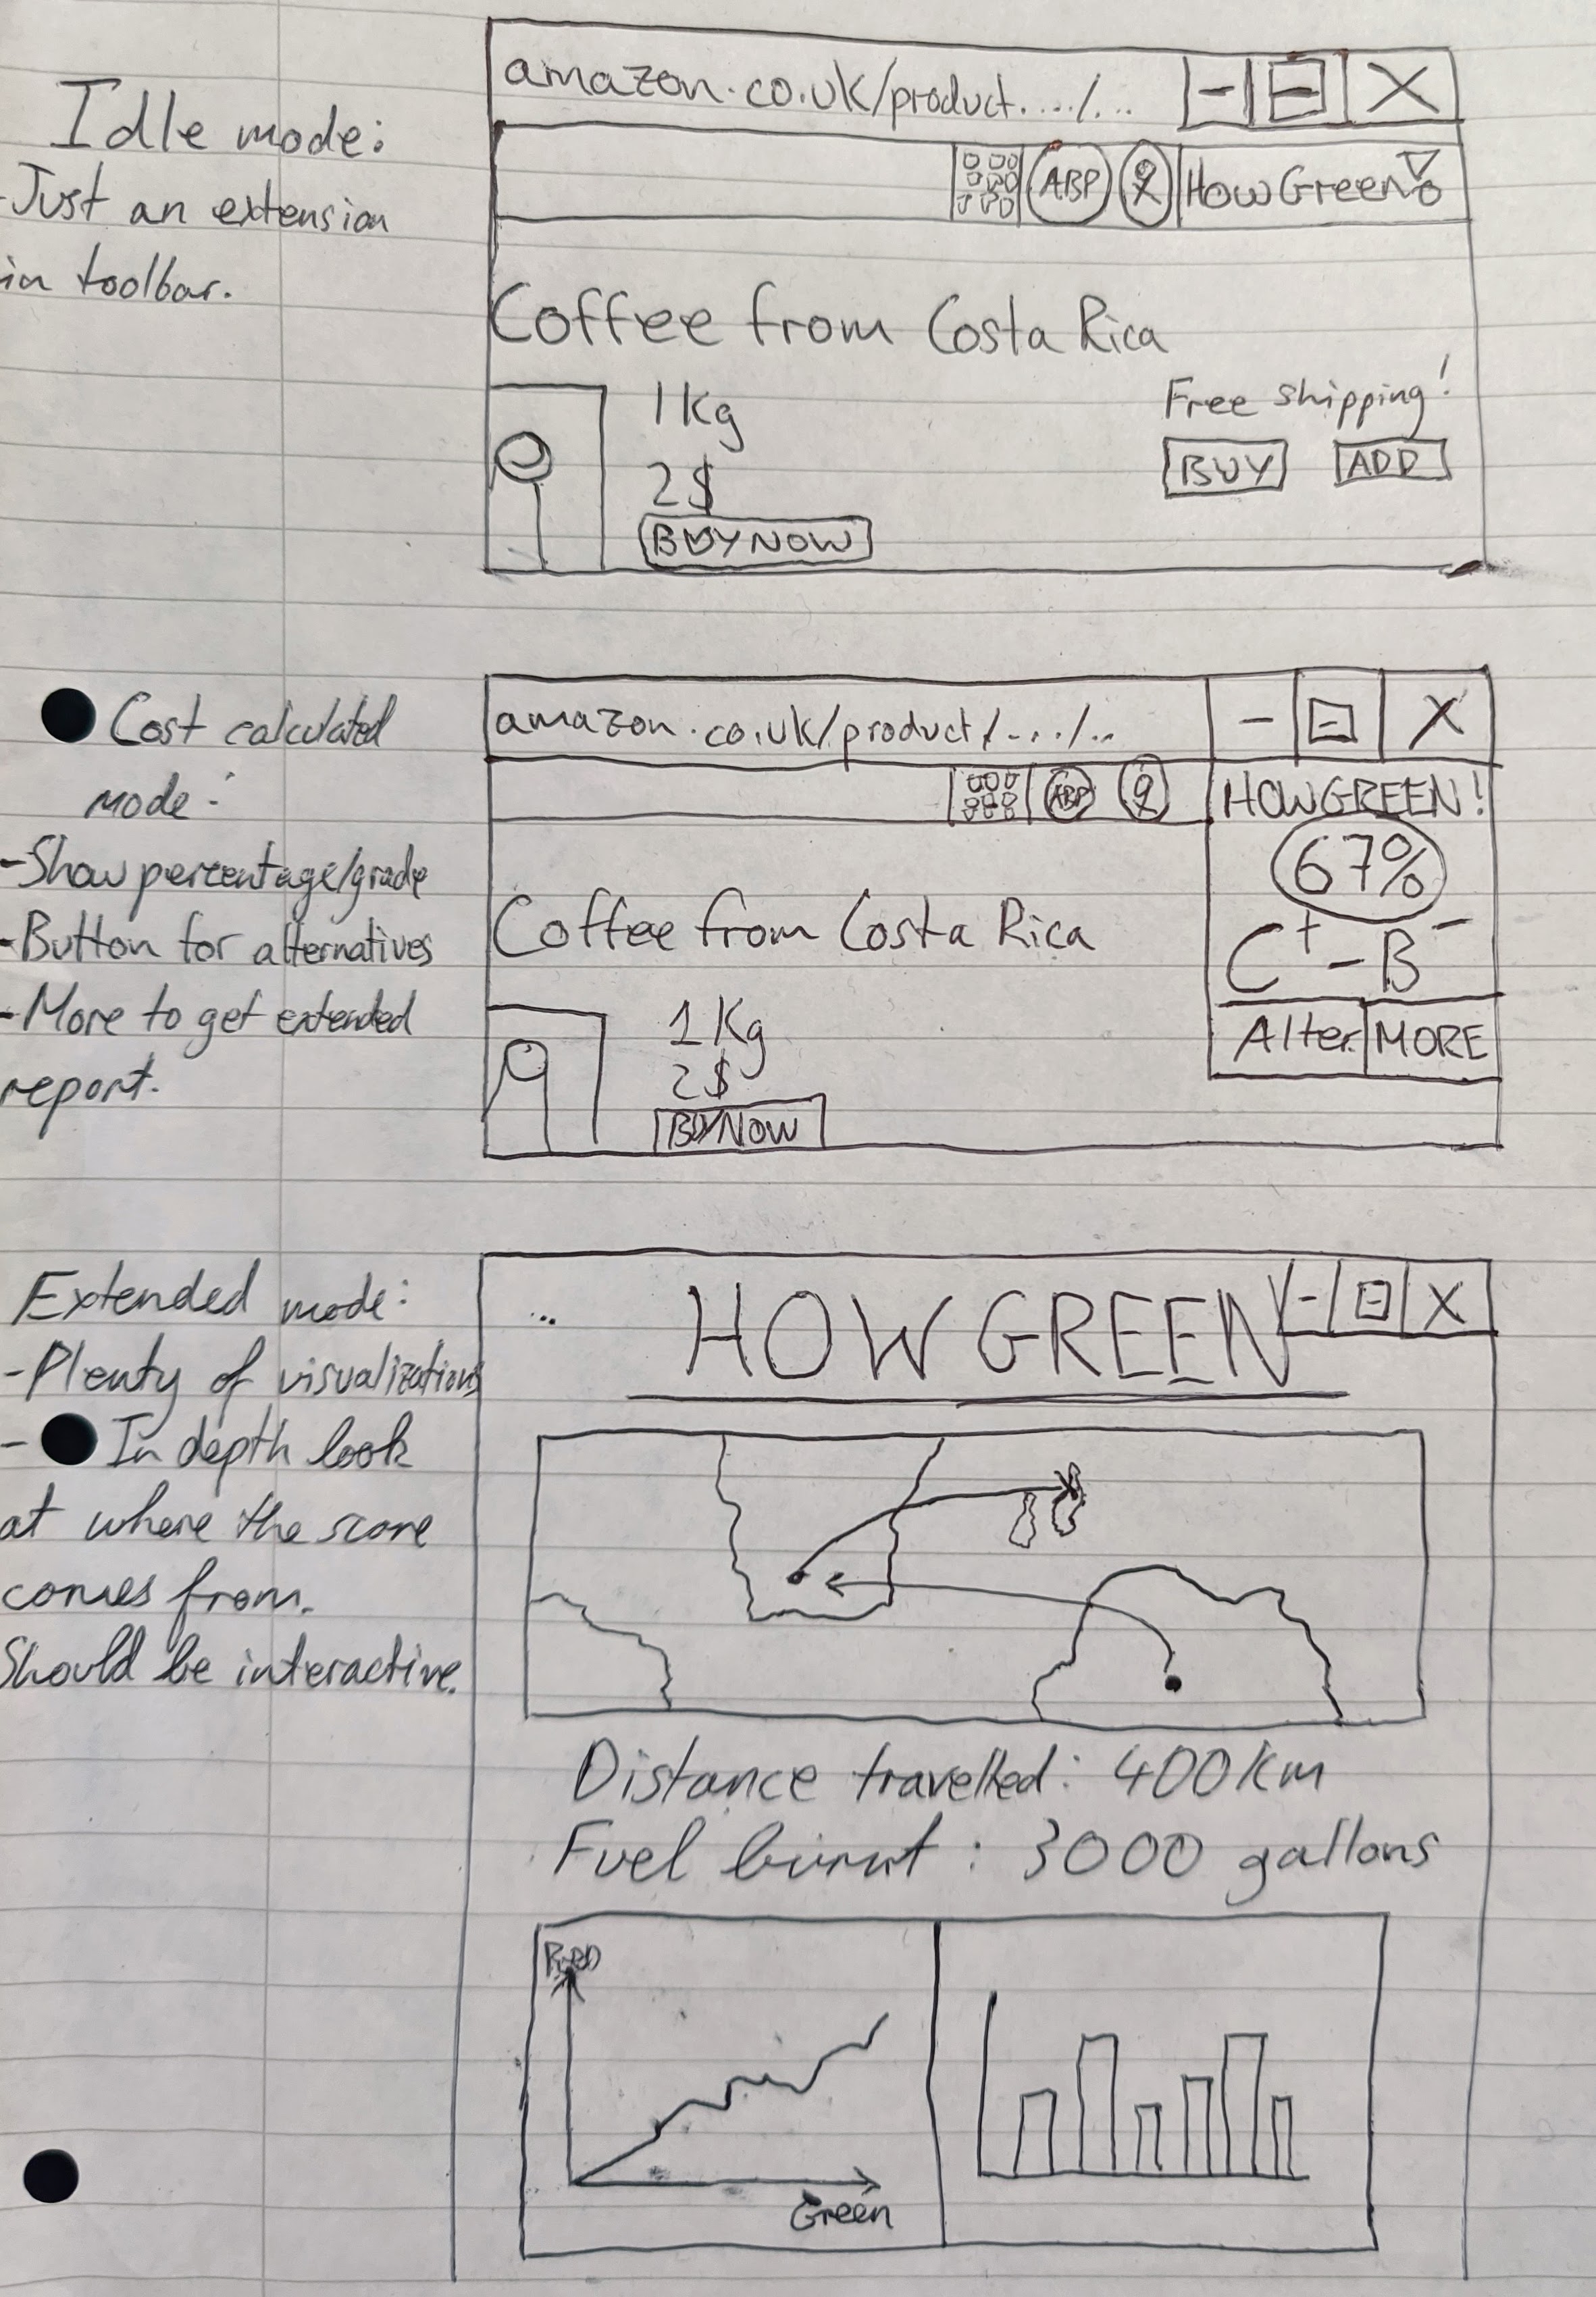 Idle mode:
-Just an extension
in toolbar.
amazon.co.uk/product..../...
- X
ABP HowGreen
Coffee from Costa Rica
1Kg
2$
BUY NOW
Free shipping!
BUY ADD
Cost calculated
mode:
-Show percentage/grade
-Button for alternatives
-More to get extended
report.
amazon.co.uk/product/..../..
- X
ABP HOWGREEN!
67%
C+-B-
Alter. MORE
Coffee from Costa Rica
1Kg
2$
BUY NOW
Extended mode:
-Plenty of visualizations
- In depth look
at where the score
comes from.
Should be interactive.
... HOW GREEN - X
Distance travelled: 400km
Fuel burnt: 3000 gallons
Red
Green